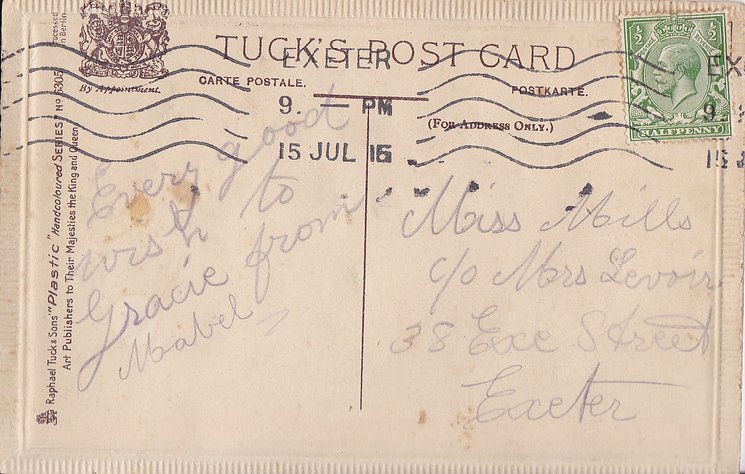 TUCK'S POST CARD
CARTE POSTALE.
POSTKARTE.
(FOR ADDRESS ONLY.)
By Appointment.
EXETER
9. — PM
15 JUL 16
½ ½
HALFPENNY
EX
9.
15
Every good
wish to
Gracie from
Mabel
Miss Mills
c/o Mrs Levoir
38 Exe Street
Exeter
Raphael Tuck & Sons' "Plastic" Handcoloured SERIES No 5305
Art Publishers to Their Majesties the King and Queen.
Processed
in Berlin